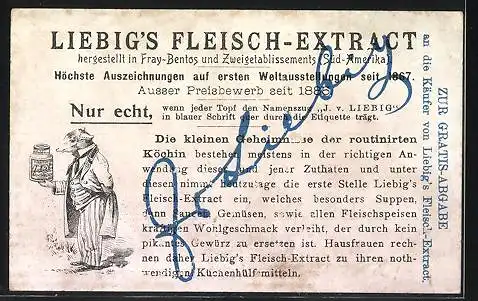 LIEBIG'S FLEISCH-EXTRACT
hergestellt in Fray-Bentos und Zweigetablissements (Süd-Amerika)
Höchste Auszeichnungen auf ersten Weltausstellungen seit 1867.
Ausser Preisbewerb seit 1885
Nur echt,
wenn jeder Topf den Namenszug „J. v. LIEBIG"
in blauer Schrift quer durch die Etiquette trägt.
Die kleinen Geheimnisse der routinirten
Köchin bestehen meistens in der richtigen An-
wendung dieser und jener Zuthaten und unter
diesen nimmt heutzutage die erste Stelle Liebig's
Fleisch-Extract ein, welches besonders Suppen,
Saucen, Gemüsen, sowie allen Fleischspeisen
kräftigen Wohlgeschmack verleiht, der durch kein
pikantes Gewürz zu ersetzen ist. Hausfrauen rech-
nen daher Liebig's Fleisch-Extract zu ihren noth-
wendigen Küchenhülfsmitteln.
J. v. Liebig
ZUR GRATIS-ABGABE
an die Käufer von Liebig's Fleisch-Extract.